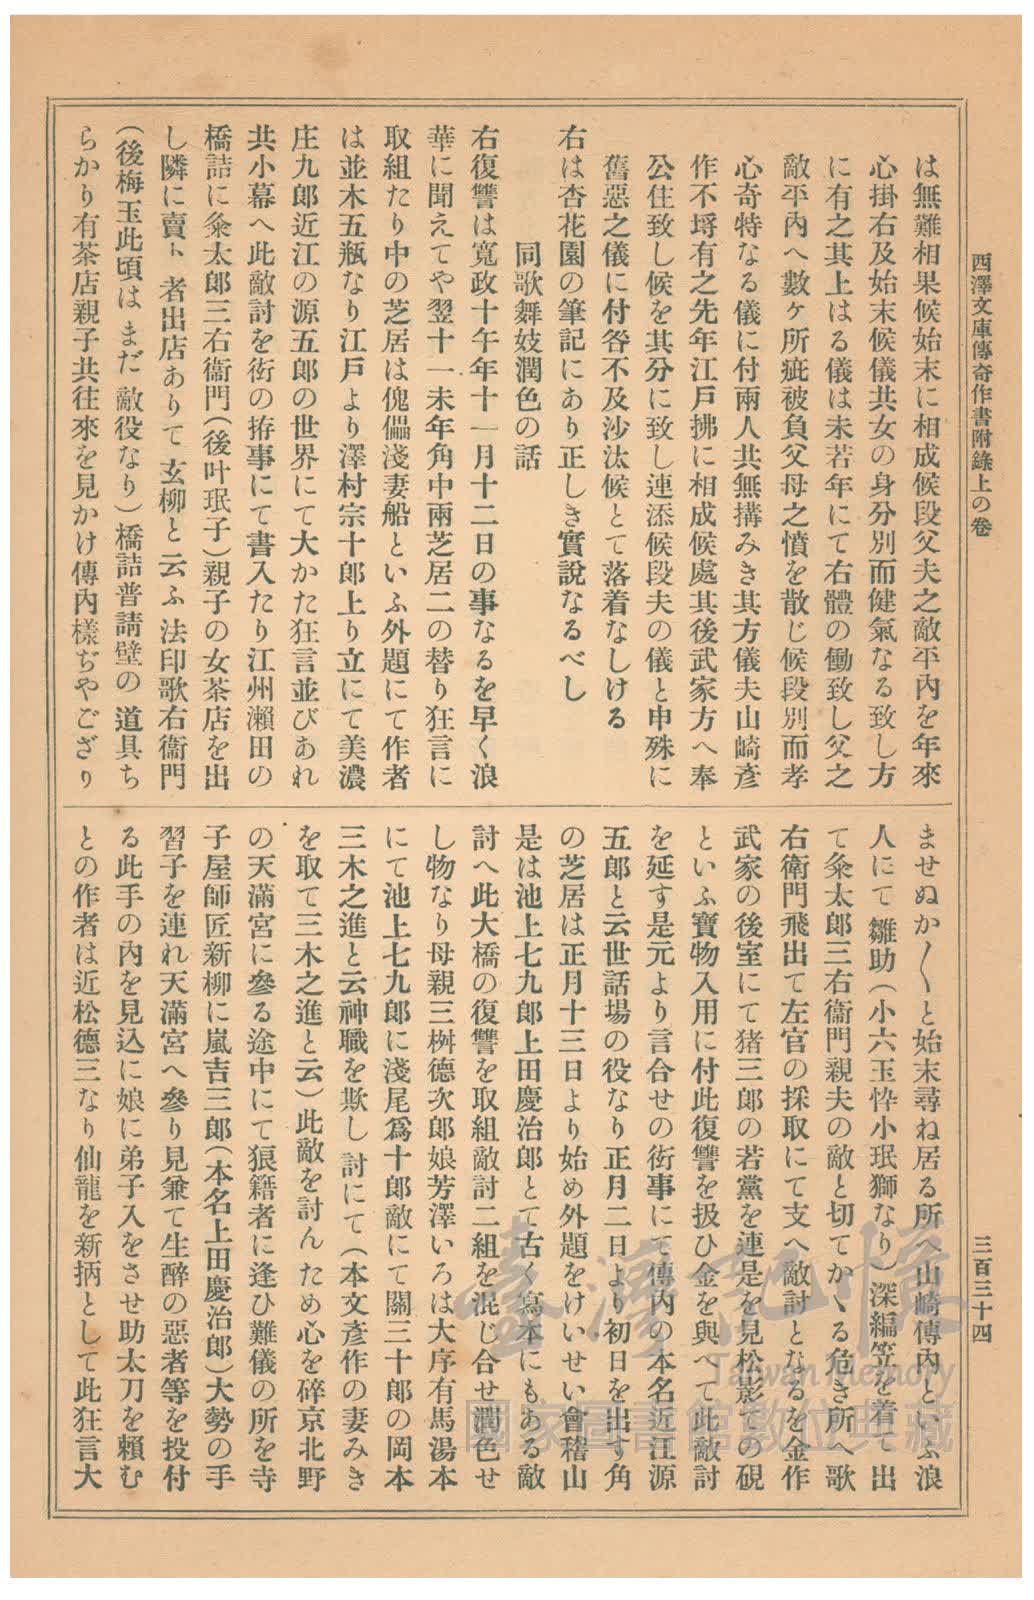 西澤文庫傳奇作書附錄上の卷
三百三十四
は無難相果候始末に相成候段父夫之敵平內を年來
心掛右及始末候儀共女の身分別而健氣なる致し方
に有之其上はる儀は未若年にて右體の働致し父之
敵平內へ數ヶ所疵被負父母之憤を散じ候段別而孝
心奇特なる儀に付兩人共無搆みき其方儀夫山崎彥
作不埓有之先年江戶拂に相成候處其後武家方へ奉
公住致し候を其分に致し連添候段夫の儀と申殊に
舊惡之儀に付咎不及沙汰候とて落着なしける
右は杏花園の筆記にあり正しき實說なるべし
同歌舞妓潤色の話
右復讐は寬政十午年十一月十二日の事なるを早く浪
華に聞えてや翌十一未年角中兩芝居二の替り狂言に
取組たり中の芝居は傀儡淺妻船といふ外題にて作者
は並木五瓶なり江戶より澤村宗十郞上り立にて美濃
庄九郞近江の源五郞の世界にて大かた狂言並びあれ
共小幕へ此敵討を衒の拵事にて書入たり江州瀨田の
橋詰に粂太郞三右衞門(後叶珉子)親子の女茶店を出
し隣に賣卜者出店ありて玄柳と云ふ法印歌右衞門
(後梅玉此頃はまだ敵役なり)橋詰普請壁の道具ち
らかり有茶店親子共往來を見かけ傳內樣ぢやござり
ませぬか〱と始末尋ね居る所へ山崎傳內といふ浪
人にて雛助(小六玉忰小珉獅なり)深編笠を着て出
て粂太郞三右衞門親夫の敵と切てかゝる危き所へ歌
右衞門飛出て左官の採取にて支へ敵討となるを金作
武家の後室にて猪三郞の若黨を連是を見松影ての硯
といふ寶物入用に付此復讐を扱ひ金を與へて此敵討
を延す是元より言合せの衒事にて傳內の本名近江源
五郞と云世話場の役なり正月二日より初日を出す角
の芝居は正月十三日より始め外題をけいせい會稽山
是は池上七九郞上田慶治郞とて古く寫本にもある敵
討へ此大橋の復讐を取組敵討二組を混じ合せ潤色せ
し物なり母親三桝德次郞娘芳澤いろは大序有馬湯本
にて池上七九郞に淺尾爲十郞敵にて關三十郞の岡本
三木之進と云神職を欺し討にて(本文彥作の妻みき
を取て三木之進と云)此敵を討んため心を碎京北野
の天滿宮に參る途中にて狼籍者に逢ひ難儀の所を寺
子屋師匠新柳に嵐吉三郞(本名上田慶治郞)大勢の手
習子を連れ天滿宮へ參り見兼て生醉の惡者等を投付
る此手の內を見込に娘に弟子入をさせ助太刀を賴む
との作者は近松德三なり仙龍を新柄として此狂言大
臺灣記憶
Taiwan Memory
國家圖書館數位典藏